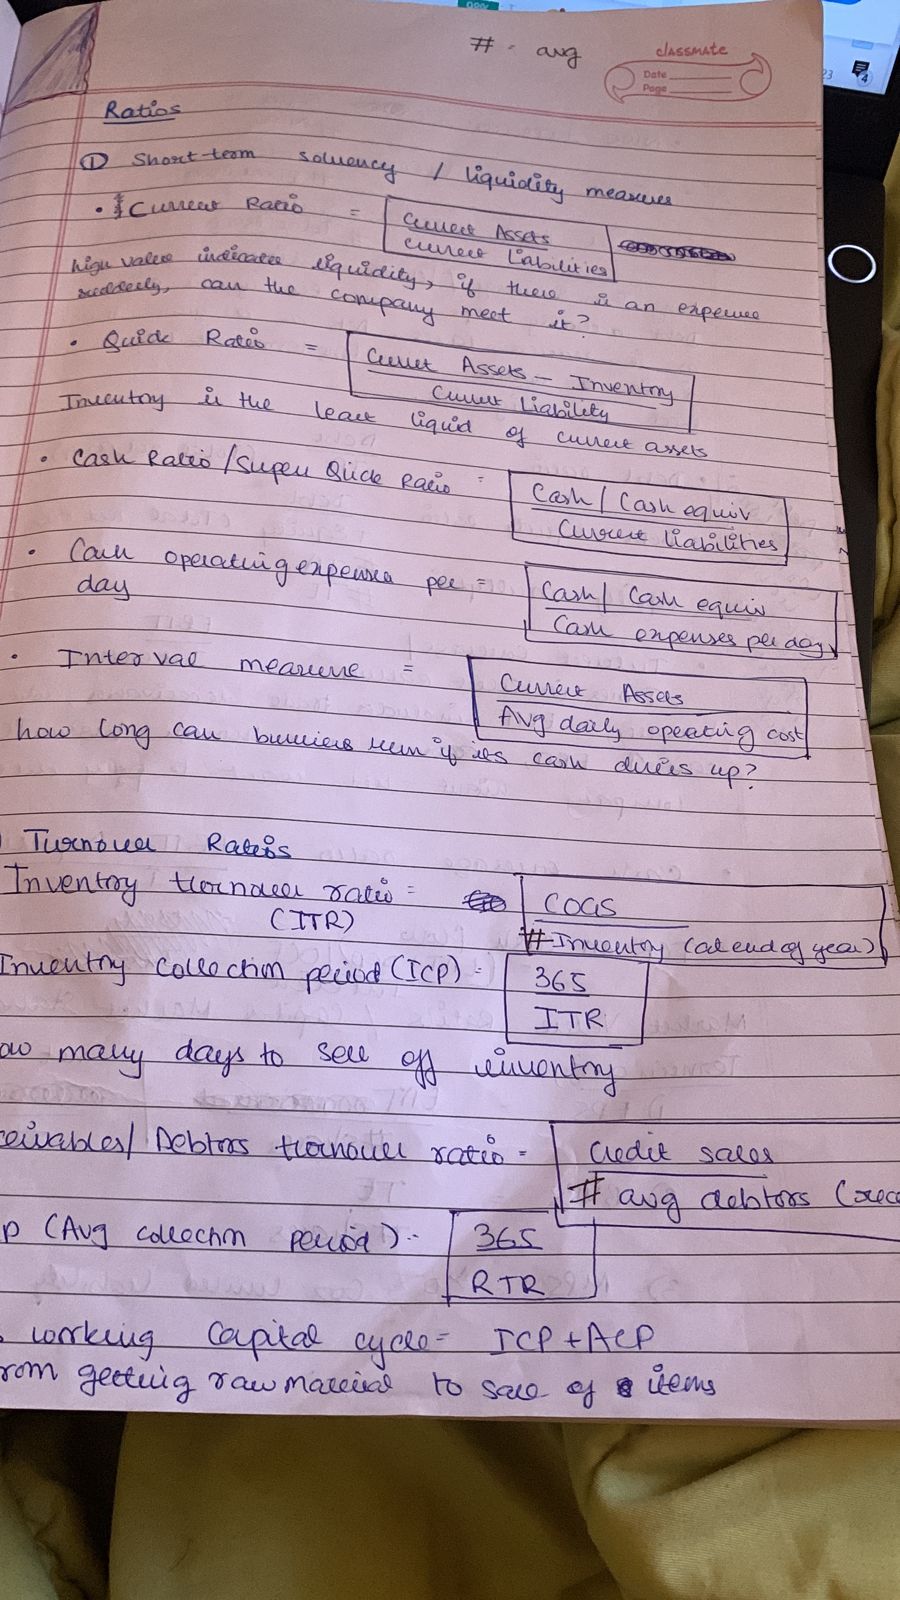 # - avg
classmate
Date
Page
Ratios
① Short-term solvency / liquidity measures
• Current Ratio = Current Assets
Current Liabilities
high value indicates liquidity, if there is an expense
suddenly, can the company meet it?
• Quick Ratio = Current Assets - Inventory
Current Liability
Inventory is the least liquid of current assets
• Cash Ratio / Super Quick Ratio = Cash / Cash equiv
Current liabilities
• Cash operating expenses per = Cash / Cash equiv
day Cash expenses per day
• Interval measure = Current Assets
Avg daily operating cost
how long can business run if its cash dries up?
Turnover Ratios
Inventory turnover ratio = COGS
(ITR) # Inventory (at end of year)
Inventory collection period (ICP) = 365
ITR
ow many days to sell off inventory
ceivables / Debtors turnover ratio = Credit sales
# avg debtors (rece
P (Avg collection period) = 365
RTR
working capital cycle = ICP + ACP
rom getting raw material to sale of items